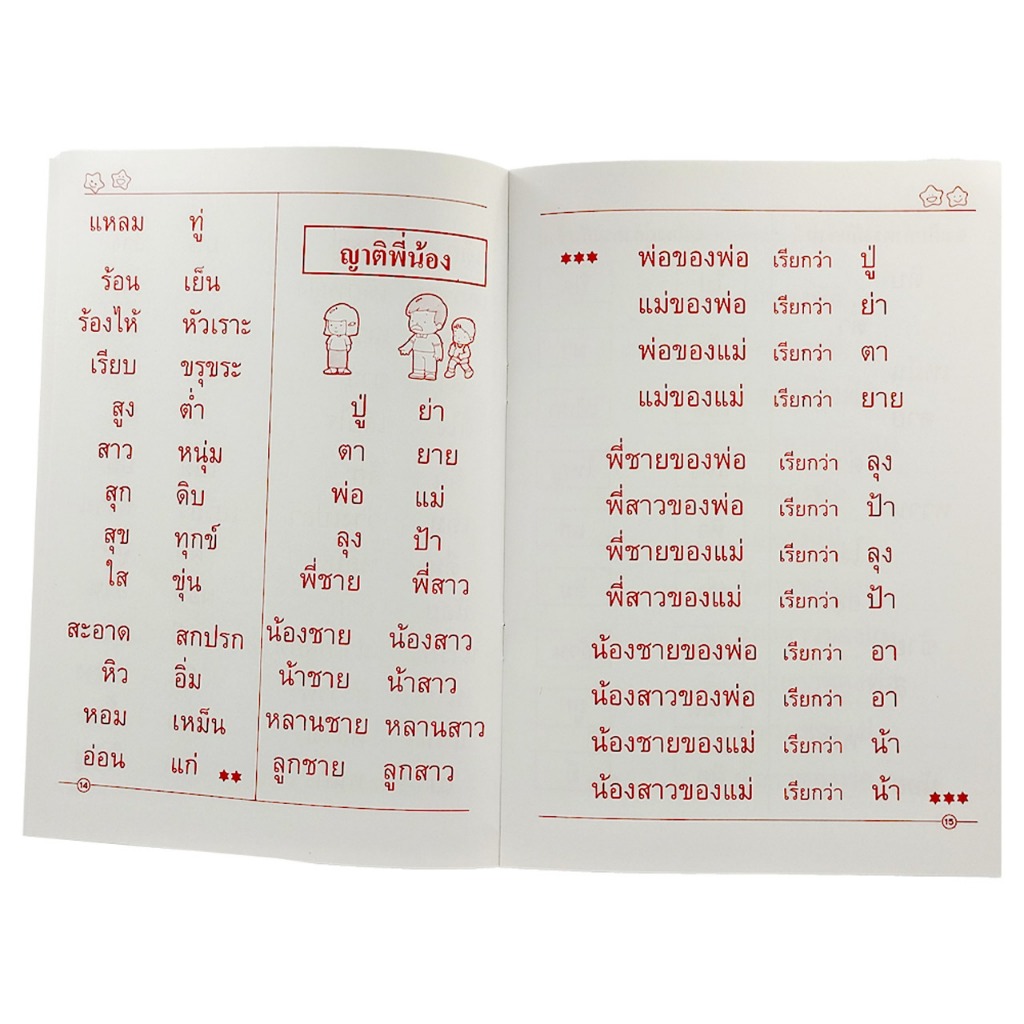 แหลม ทู่
ร้อน เย็น
ร้องไห้ หัวเราะ
เรียบ ขรุขระ
สูง ต่ำ
สาว หนุ่ม
สุก ดิบ
สุข ทุกข์
ใส ขุ่น
สะอาด สกปรก
หิว อิ่ม
หอม เหม็น
อ่อน แก่
14
ญาติพี่น้อง
ปู่ ย่า
ตา ยาย
พ่อ แม่
ลุง ป้า
พี่ชาย พี่สาว
น้องชาย น้องสาว
น้าชาย น้าสาว
หลานชาย หลานสาว
ลูกชาย ลูกสาว
พ่อของพ่อ เรียกว่า ปู่
แม่ของพ่อ เรียกว่า ย่า
พ่อของแม่ เรียกว่า ตา
แม่ของแม่ เรียกว่า ยาย
พี่ชายของพ่อ เรียกว่า ลุง
พี่สาวของพ่อ เรียกว่า ป้า
พี่ชายของแม่ เรียกว่า ลุง
พี่สาวของแม่ เรียกว่า ป้า
น้องชายของพ่อ เรียกว่า อา
น้องสาวของพ่อ เรียกว่า อา
น้องชายของแม่ เรียกว่า น้า
น้องสาวของแม่ เรียกว่า น้า
15